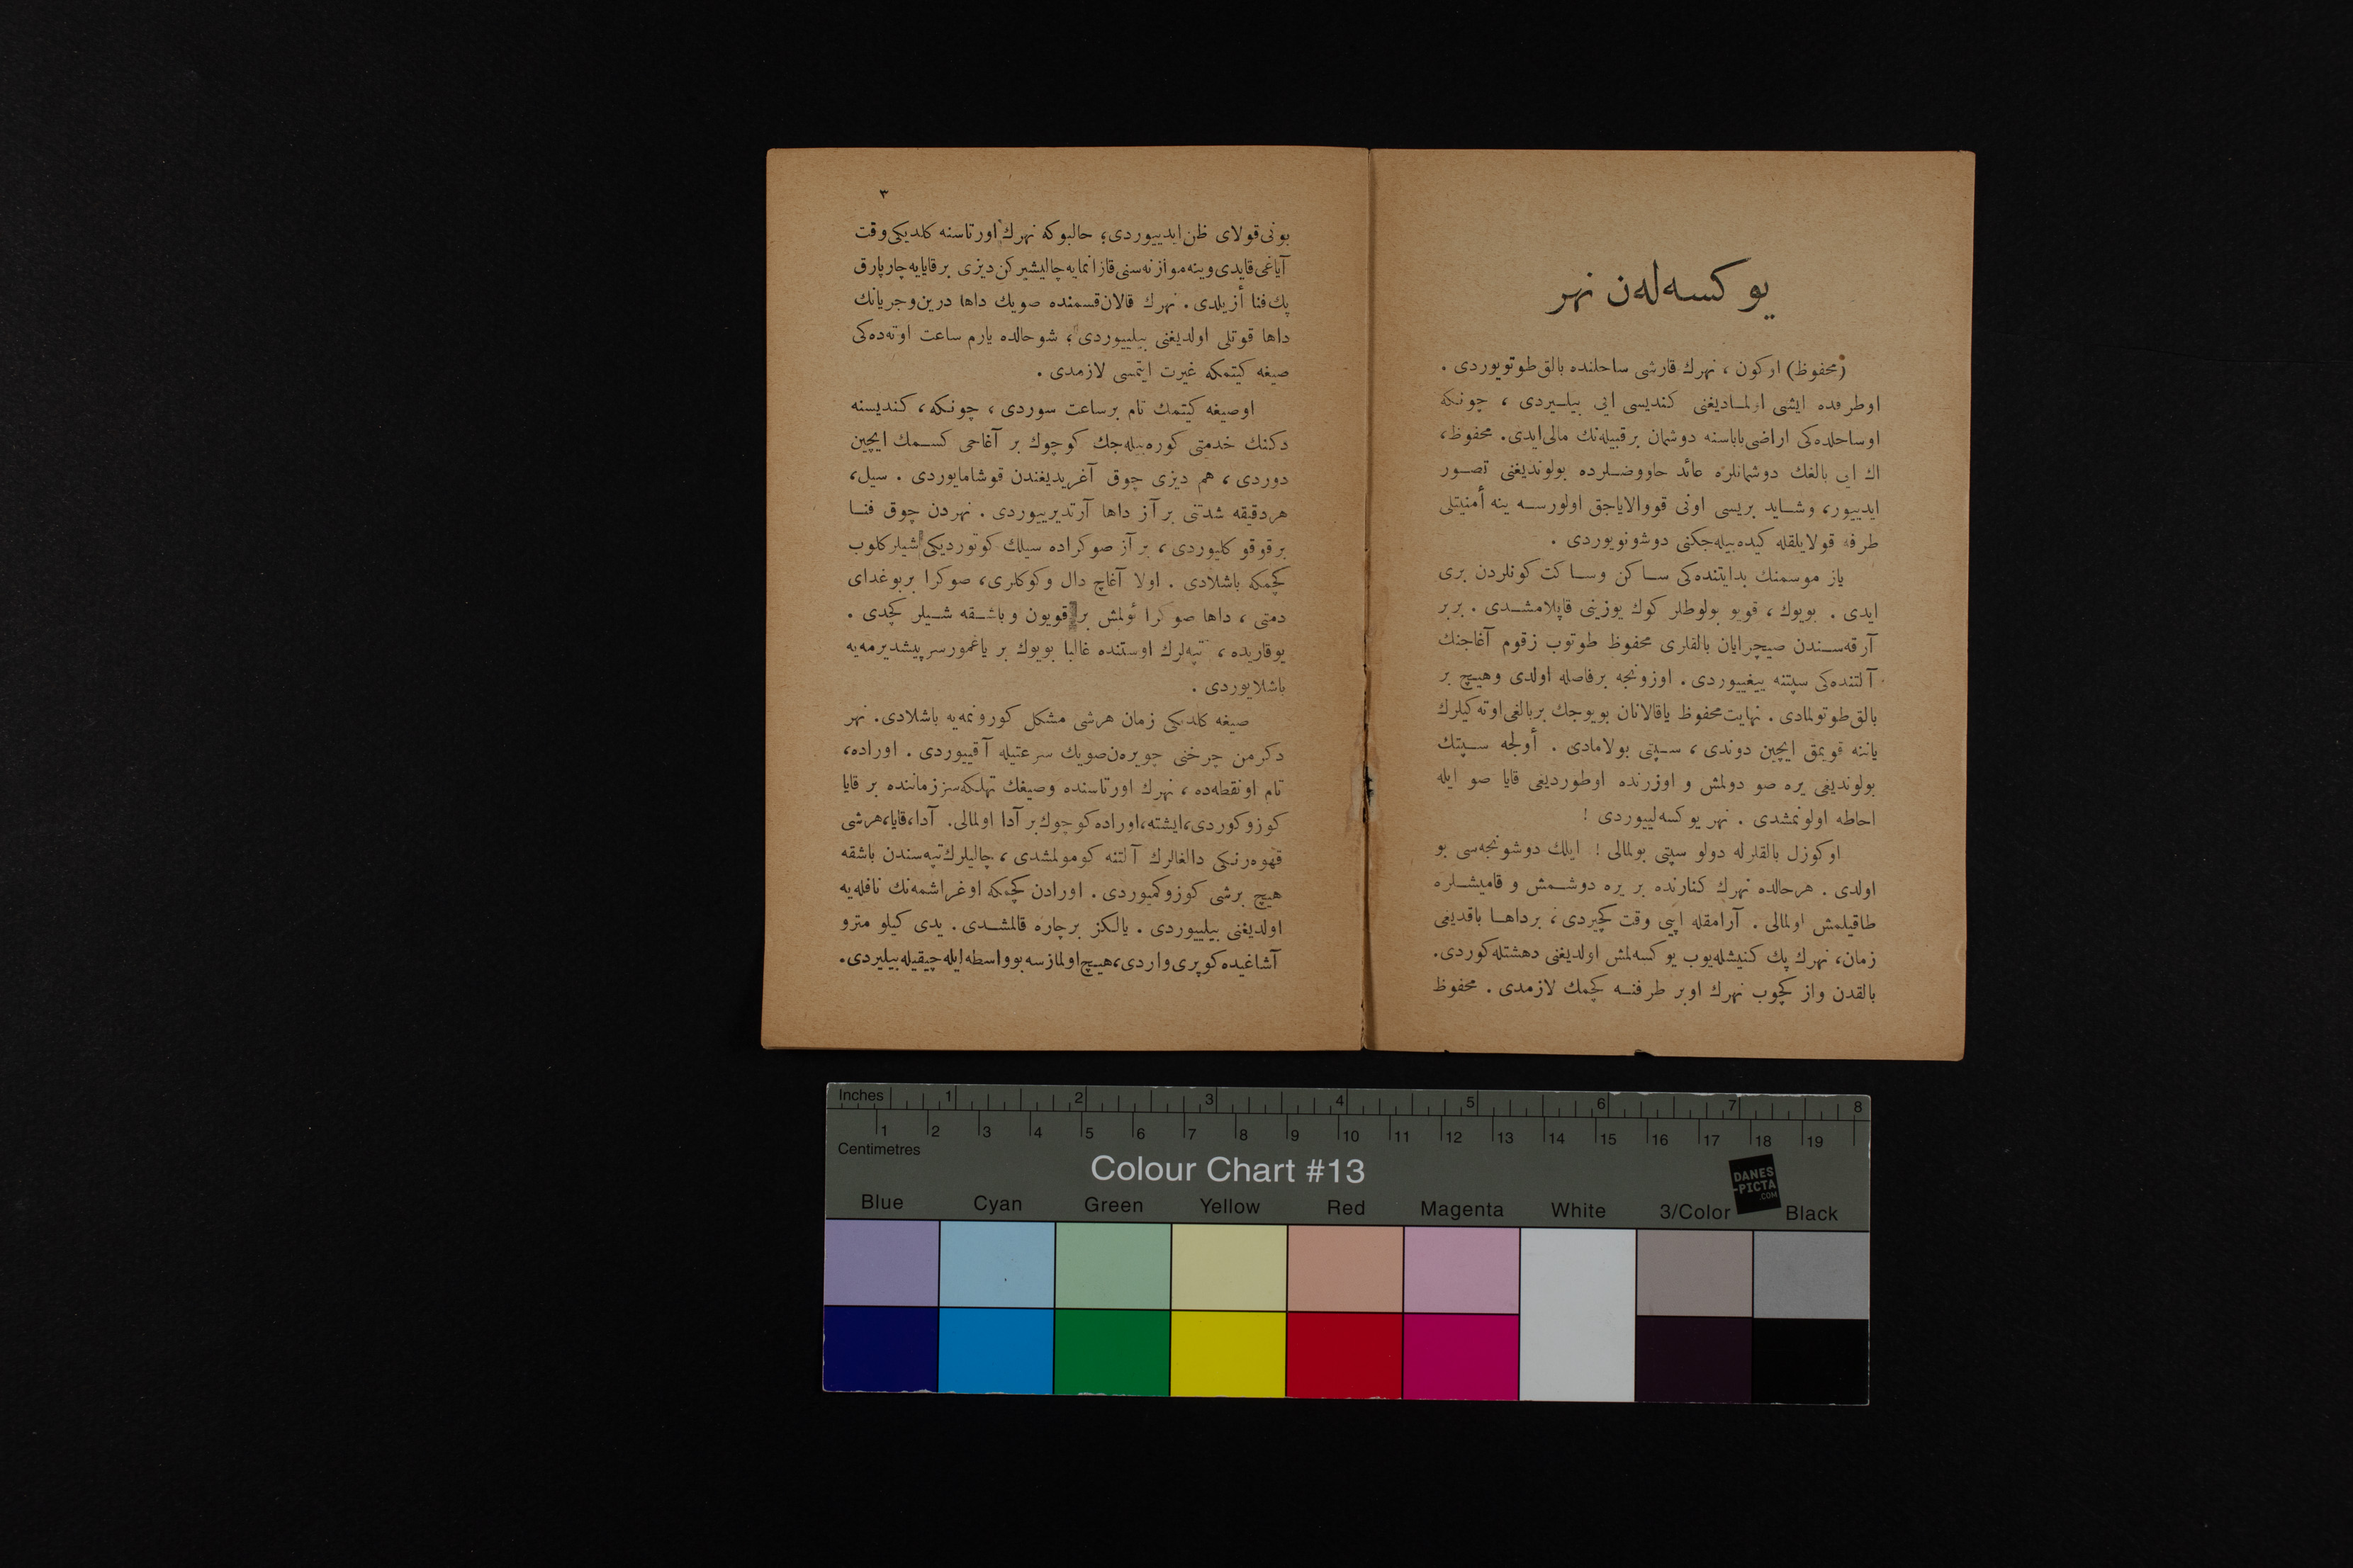 یوکسه‌له‌ن نهر
(محفوظ) ارکون ، نهرك قارشی ساحلنده بالق طوتویوردی .
اوطرفده ایشی اولمـادیغنی کندیسی ایی بیلـیردی ، چونکه
اوساحلده‌کی اراضی باباسنه دوشمان برقبیله‌نك مالی ایدی. محفوظ،
اك ایی بالغك دوشمانلره عائد حاووضـلرده بولوندیغنی تصـور
ایدییور، وشـاید بریسی اونی قووالایاجق اولورسـه ینه أمنیتلی
طرفه قولایلقله کیده‌بیله‌جکنی دوشونویوردی .
یاز موسمنك بدایتنده‌کی سـاکن وسـاکت کونلردن بری
ایدی . بویوك ، قویو بولوطلر کوك یوزینی قاپلامشـدی . بربر
آرقه‌سـندن صیچرایان بالقلری محفوظ طوتوب زقوم آغاجنك
آلتنده‌کی سپتنه ییغییوردی . اوزونجه برفاصله اولدی وهیـچ بر
بالق طوتولمادی . نهایت محفوظ یاقالانان بویوجك بربالغی اوته‌کیلرك
یاننه قویمق ایچین دوندی ، سـپتی بولامادی . أولجه سـپتك
بولوندیغی یره صو دولمش و اوزرنده اوطوردیغی قایا صو ایله
احاطه اولونمشدی . نهر یوکسه‌لییوردی !
اوکوزل بالقلرله دولو سپتی بولمالی ! ایلك دوشونجه‌سی بو
اولدی . هرحالده نهرك کنارنده بر یره دوشـمش و قامیشـلره
طاقیلمش اولمالی . آرامقله اپی وقت کچیردی ، برداهـا باقدیغی
زمان، نهرك پك کنیشله‌یوب یوکسه‌لمش اولدیغنی دهشتله کوردی.
بالقدن واز کچوب نهرك اوبر طرفنـه کچمك لازمدی . محفوظ
۳
بونی قولای ظن ایدییوردی؛ حالبوکه نهرك اورتاسنه کلدیکی وقت
آیاغی قایدی وینه موازنه‌سنی قازانمایه چالیشیرکن دیزی برقایایه چارپارق
پك فنا أزیلدی . نهرك قالان قسمنده صویك داها درین وجریانك
داها قوتلی اولدیغنی بیلییوردی ؛ شو حالده یارم ساعت اوته‌ده‌کی
صیغه کیتمکه غیرت ایتمسی لازمدی .
اوصیغه کیتمك تام برساعت سوردی ، چونکه ، کندیسنه
دکنك خدمتی کوره‌بیله‌جك کوچوك بر آغاجی کسـمك ایچین
دوردی ، هم دیزی چوق آغریدیغندن قوشامایوردی . سیل،
هردقیقه شدتنی بر آز داها آرتدیرییوردی . نهردن چوق فنـا
برقوقو کلیوردی ، بر آز صوکراده سیلك کوتوردیکی شیلرکلوب
کچمکه باشلادی . اولا آغاچ دال وکوکلری، صوکرا بربوغدای
دمتی ، داها صوکرا ئولمش بر قویون و باشـقه شـیلر کچدی .
یوقاریده ، تپه‌لرك اوستنده غالبا بویوك بر یاغمورسرپیشدیرمه‌یه
باشلایوردی .
صیغه کلدیکی زمان هرشی مشکل کورونمه‌یه باشلادی. نهر
دکرمن چرخنی چویره‌ن‌صویك سرعتیله آقییوردی . اوراده،
تام اونقطه‌ده ، نهرك اورتاسنده وصیغك تهلکه‌سز زماننده بر قایا
کوزوکوردی،ایشته،اوراده کوچوك بر آدا اولمالی. آدا،قایا،هرشی
قهوه‌رنکی دالغالرك آلتنه کومولمشدی ، چالیلرك تپه‌سندن باشقه
هیچ برشی کوزوکمیوردی . اورادن کچمکه اوغراشمه‌نك نافله‌یه
اولدیغنی بیلییوردی . یالکز برچاره قالمشـدی . یدی کیلو مترو
آشاغیده کوپری واردی،هیـچ اولمازسه بوواسطه ایله چیقیله‌بیلیردی.
Inches 1 2 3 4 5 6 7 8
1 2 3 4 5 6 7 8 9 10 11 12 13 14 15 16 17 18 19
Centimetres
Colour Chart #13
DANES
-PICTA
.COM
Blue Cyan Green Yellow Red Magenta White 3/Color Black